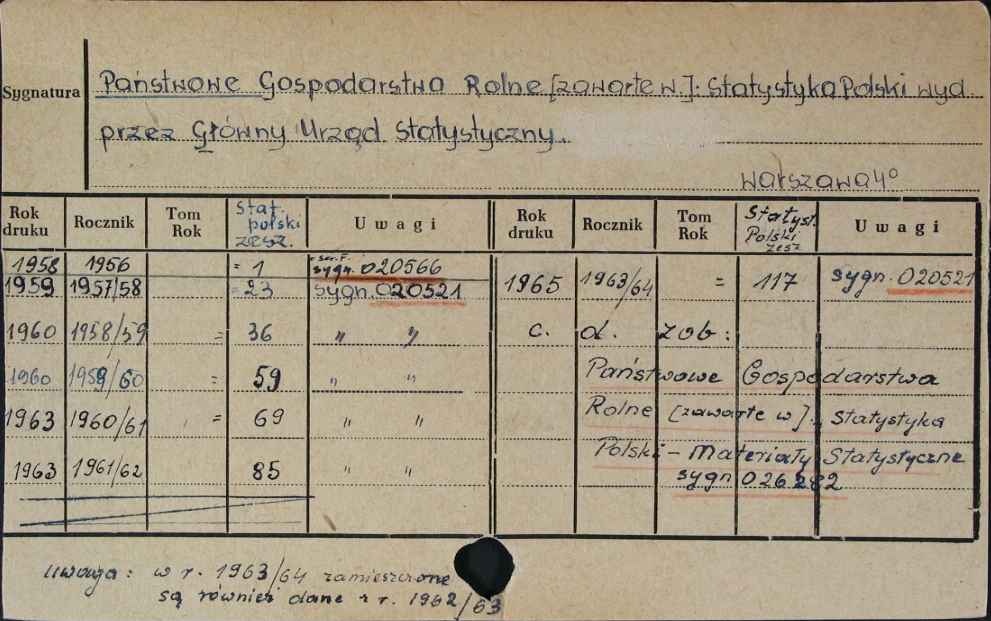 Sygnatura
Państwowe Gospodarstwa Rolne [zawarte w]: Statystyka Polski wyd.
przez Główny Urząd Statystyczny.
Warszawa 4°
Rok druku Rocznik Tom Rok Stat. polski zesz. Uwagi Rok druku Rocznik Tom Rok Statyst. Polski zesz Uwagi
1958 1956 = 1 ser. F. sygn. 020566
1959 1957/58 = 23 sygn. 020521 1965 1963/64 = 117 sygn. 020521
1960 1958/59 = 36 " " c. d. zob:
1960 1959/60 = 59 " " Państwowe Gospodarstwa
1963 1960/61 = 69 " " Rolne [zawarte w]: Statystyka
1963 1961/62 85 " " Polski - Materiały Statystyczne
sygn 026282
Uwaga: w r. 1963/64 zamieszczone
są również dane z r. 1962/63